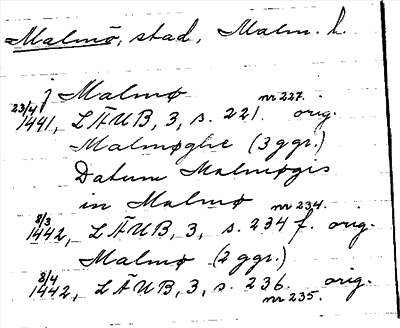 Malmö, stad, Malm. h.
j Malmø
23/4 1441, LÄUB, 3, s. 221. nr 227. orig.
Malmøghe (3 ggr.)
Datum Malmøgis
in Malmø
8/3 1442, LÄUB, 3, s. 234 f. nr 234. orig.
Malmø (2 ggr.)
8/4 1442, LÄUB, 3, s. 236. nr 235. orig.